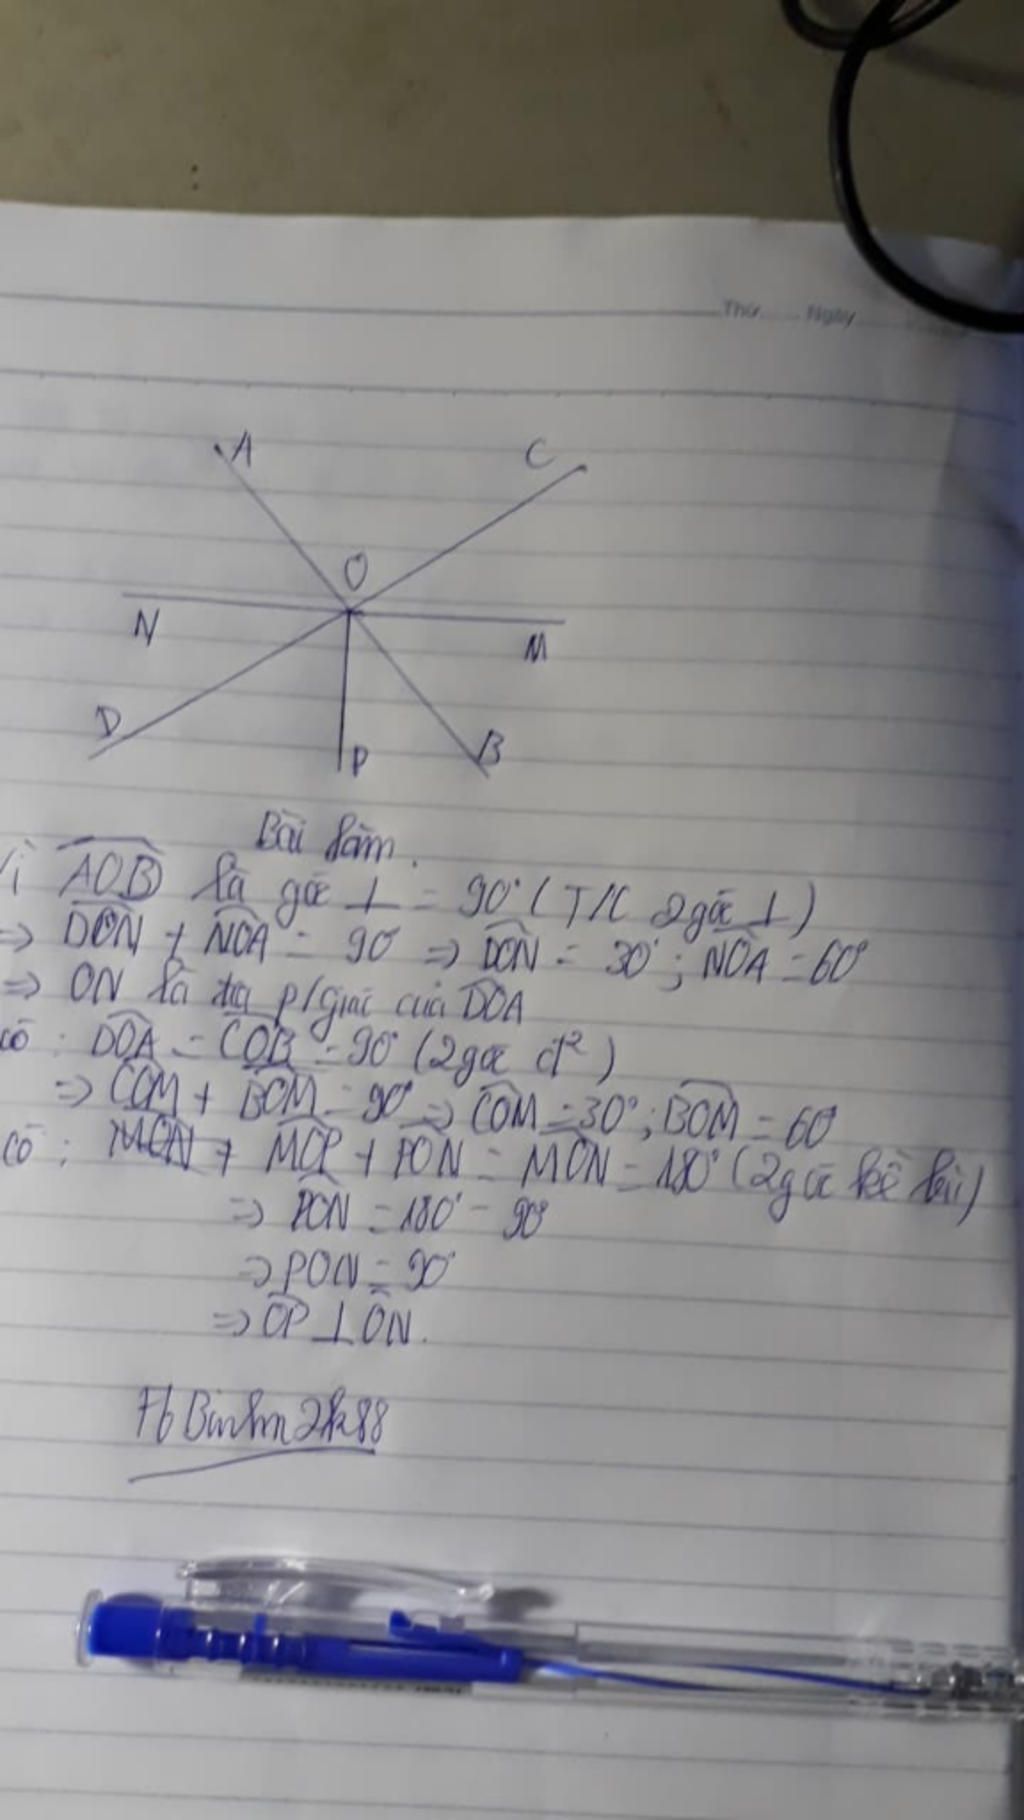 Thứ Ngày
A
C
O
N
M
D
P
B
Bài làm.
Vì AOB là góc ⊥ = 90° (T/C 2 góc ⊥)
⇒ DON + NOA = 90° ⇒ DON = 30°; NOA = 60°
⇒ ON là tia p/giác của DOA
có: DOA = COB = 90° (2 góc đ²)
⇒ COM + BOM = 90° ⇒ COM = 30°; BOM = 60°
có: MON + MOP + PON = MON = 180° (2 góc kề bù)
⇒ PON = 180° - 90°
⇒ PON = 90°
⇒ OP ⊥ ON.
Fb Binhm2k88